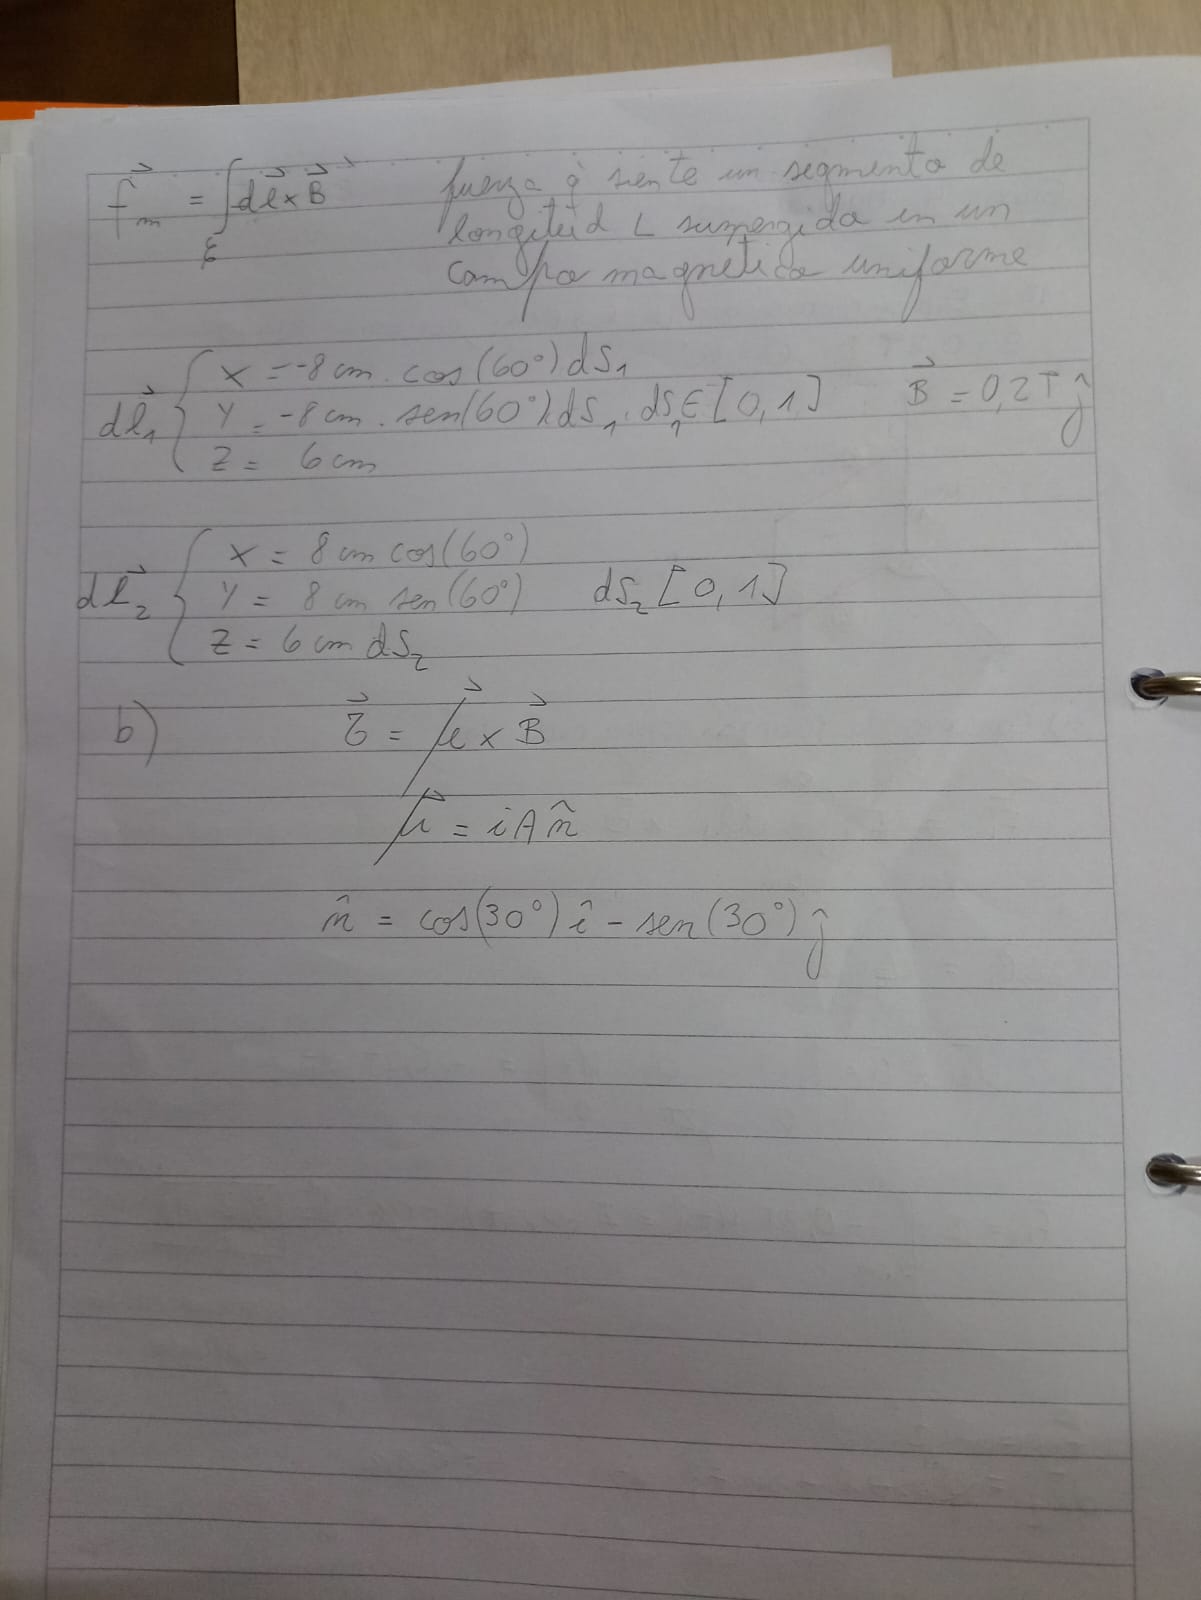 f⃗m = ∫ε dl⃗ x B⃗
fuerza q̇ siente un segmento de
longitud L sumergida en un
campo magnético uniforme
dl⃗₁ { x = -8 cm . cos (60°) dS₁
y = -8 cm . sen(60°) dS₁ . dS₁ ∈ [0,1]
z = 6 cm
B⃗ = 0,2T ĵ
dl⃗₂ { x = 8 cm cos (60°)
y = 8 cm sen (60°) dS₂ [0,1]
z = 6 cm dS₂
b) τ⃗ = μ⃗ x B⃗
μ⃗ = i A n̂
n̂ = cos(30°) î - sen (30°) ĵ